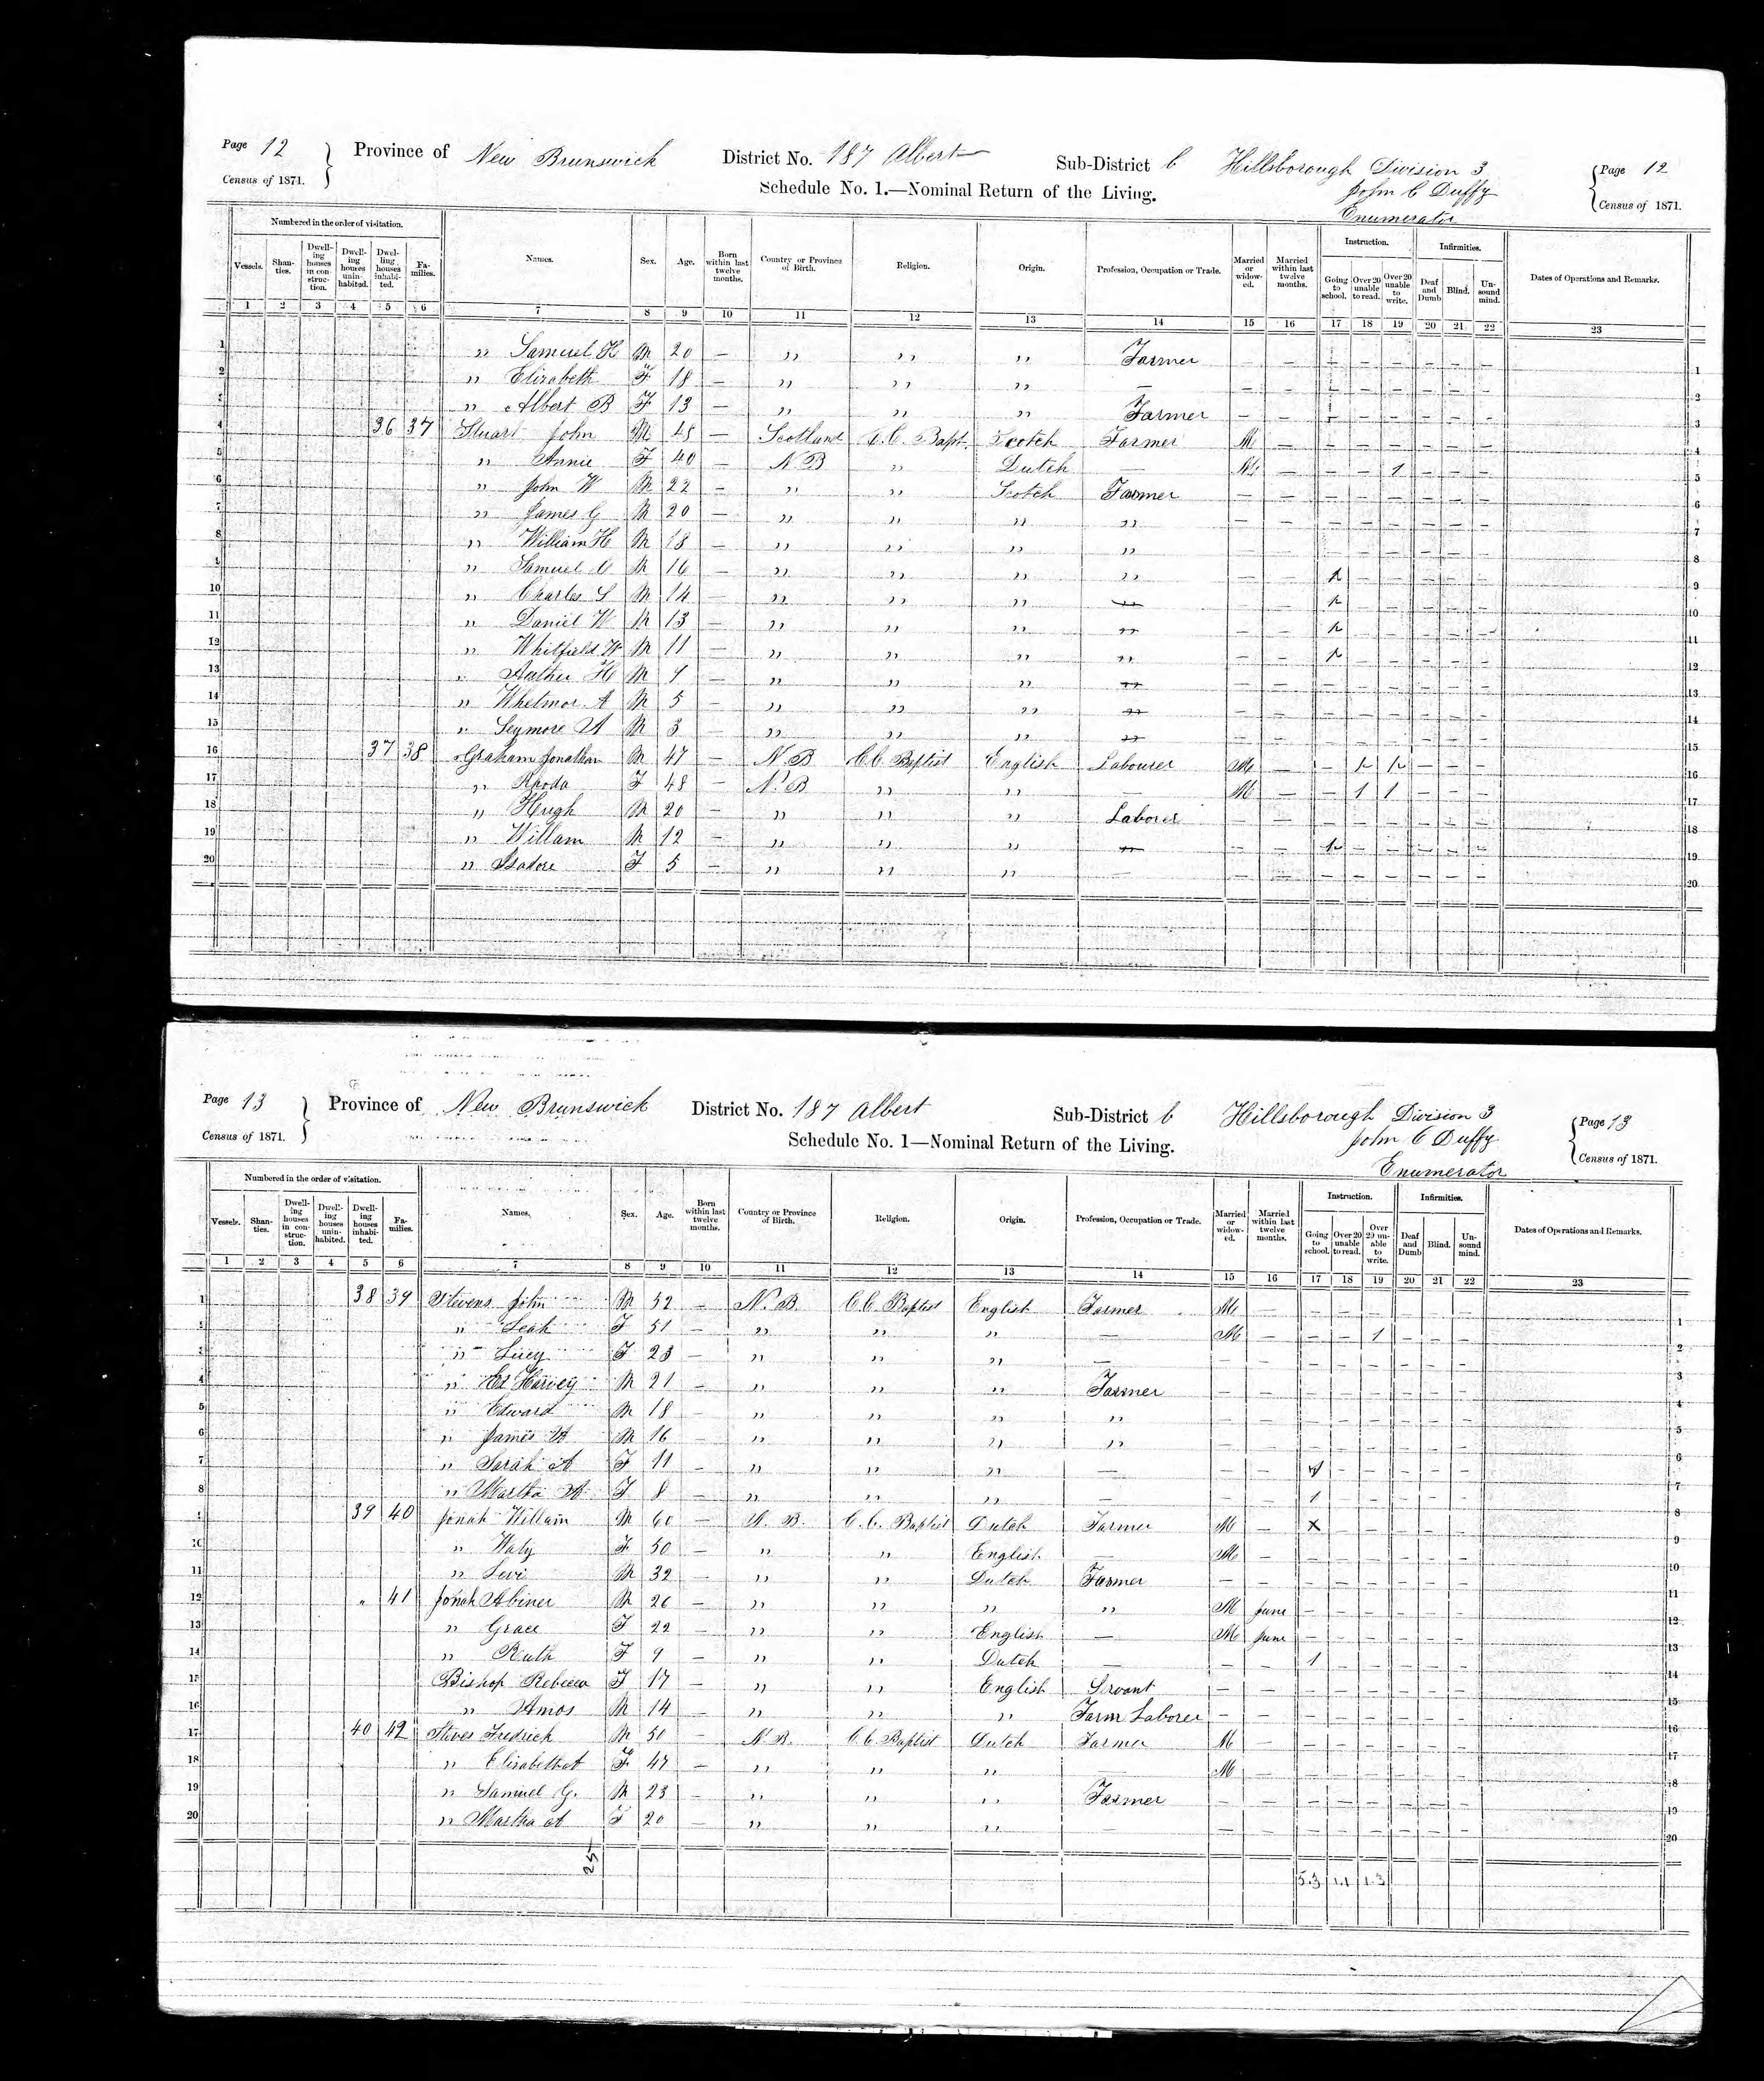 Page 12 Province of New Brunswick District No. 187 Albert Sub-District b Hillsborough Division 3 Page 12
Census of 1871. Schedule No. 1.—Nominal Return of the Living. John C Duffy Census of 1871.
Enumerator
Numbered in the order of visitation. Instruction. Infirmities.
Vessels. Shanties. Dwelling houses in construction. Dwelling houses uninhabited. Dwelling houses inhabited. Families. Names. Sex. Age. Born within last twelve months. Country or Province of Birth. Religion. Origin. Profession, Occupation or Trade. Married or widowed. Married within last twelve months. Going to school. Over 20 unable to read. Over 20 unable to write. Deaf and Dumb Blind. Unsound mind. Dates of Operations and Remarks.
1 2 3 4 5 6 7 8 9 10 11 12 13 14 15 16 17 18 19 20 21 22 23
1 " Samuel H M 20 — " " " Farmer — — — — — — — — 1
2 " Elizabeth F 18 — " " " — — — — — — — — — 2
3 " Albert B F 13 — " " " Farmer — — — — — — — — 3
4 36 37 Stuart John M 48 — Scotland C.C. Bapt. Scotch Farmer M — — — — — — — 4
5 " Annie F 40 — N B " Dutch — M — — — 1 — — — 5
6 " John W M 22 — " " Scotch Farmer — — — — — — — — 6
7 " James G M 20 — " " " " — — — — — — — — 7
8 " William H M 18 — " " " " — — — — — — — — 8
9 " Samuel M 16 — " " " " — — 1 — — — — — 9
10 " Charles S M 14 — " " " " — — 1 — — — — — 10
11 " Daniel W M 13 — " " " " — — 1 — — — — — 11
12 " Whitfield W M 11 — " " " " — — 1 — — — — — 12
13 " Arther H M 7 — " " " " — — — — — — — — 13
14 " Whetmor A M 5 — " " " " — — — — — — — — 14
15 " Seymore A M 3 — " " " " — — — — — — — — 15
16 37 38 Graham Jonathan M 47 — N.B C.C. Baptist English Labourer M — — 1 1 — — — 16
17 " Rhoda F 48 — N.B " " — M — — 1 1 — — — 17
18 " Hugh M 20 — " " " Laborer — — — — — — — 18
19 " Willam M 12 — " " " " — — 1 — — — — — 19
20 " Isadore F 5 — " " " — — — — — — — — — 20
Page 13 Province of New Brunswick District No. 187 Albert Sub-District b Hillsborough Division 3 Page 13
Census of 1871. Schedule No. 1—Nominal Return of the Living. John C Duffy Census of 1871.
Enumerator
Numbered in the order of visitation. Instruction. Infirmities.
Vessels. Shanties. Dwelling houses in construction. Dwelling houses uninhabited. Dwelling houses inhabited. Families. Names. Sex. Age. Born within last twelve months. Country or Province of Birth. Religion. Origin. Profession, Occupation or Trade. Married or widowed. Married within last twelve months. Going to school. Over 20 unable to read. Over 20 unable to write. Deaf and Dumb Blind. Unsound mind. Dates of Operations and Remarks.
1 2 3 4 5 6 7 8 9 10 11 12 13 14 15 16 17 18 19 20 21 22 23
1 38 39 Stevens John M 52 — N.B. C.C. Baptist English Farmer M — — — — — — — 1
2 " Leah F 51 — " " " — M — — — 1 — — — 2
3 " Lucy F 23 — " " " — — — — — — — — 3
4 " Harvey M 21 — " " " Farmer — — — — — — — — 4
5 " Edward M 18 — " " " " — — — — — — — — 5
6 " James A M 16 — " " " " — — — — — — — — 6
7 " Sarah A F 11 — " " " — — — 1 — — — — — 7
8 " Martha A F 8 — " " " — — — 1 — — — — — 8
9 39 40 Jonah Willam M 60 — N. B. C.C. Baptist Dutch Farmer M — X — — — — — 9
10 " F 50 — " " English — M — — — — — — — 10
11 " Levi M 32 — " " Dutch Farmer — — — — — — — — 11
12 " 41 Jonah Abiner M 26 — " " " " M June — — — — — — 12
13 " Grace F 22 — " " English — M June — — — — — — 13
14 " Ruth F 9 — " " Dutch — — — 1 — — — — — 14
15 Bishop Rebecca F 17 — " " English Servant — — — — — — — — 15
16 " Amos M 14 — " " " Farm Laborer — — — — — — — — 16
17 40 42 Steves Fredrick M 51 — N.B. C.C. Baptist Dutch Farmer M — — — — — — — 17
18 " Elizabeth A F 47 — " " " — M — — — — — — — 18
19 " Samuel G. M 23 — " " " Farmer — — — — — — — — 19
20 " Martha A F 20 — " " " — — — — — — — — — 20
25
5.3 1.1 1.3